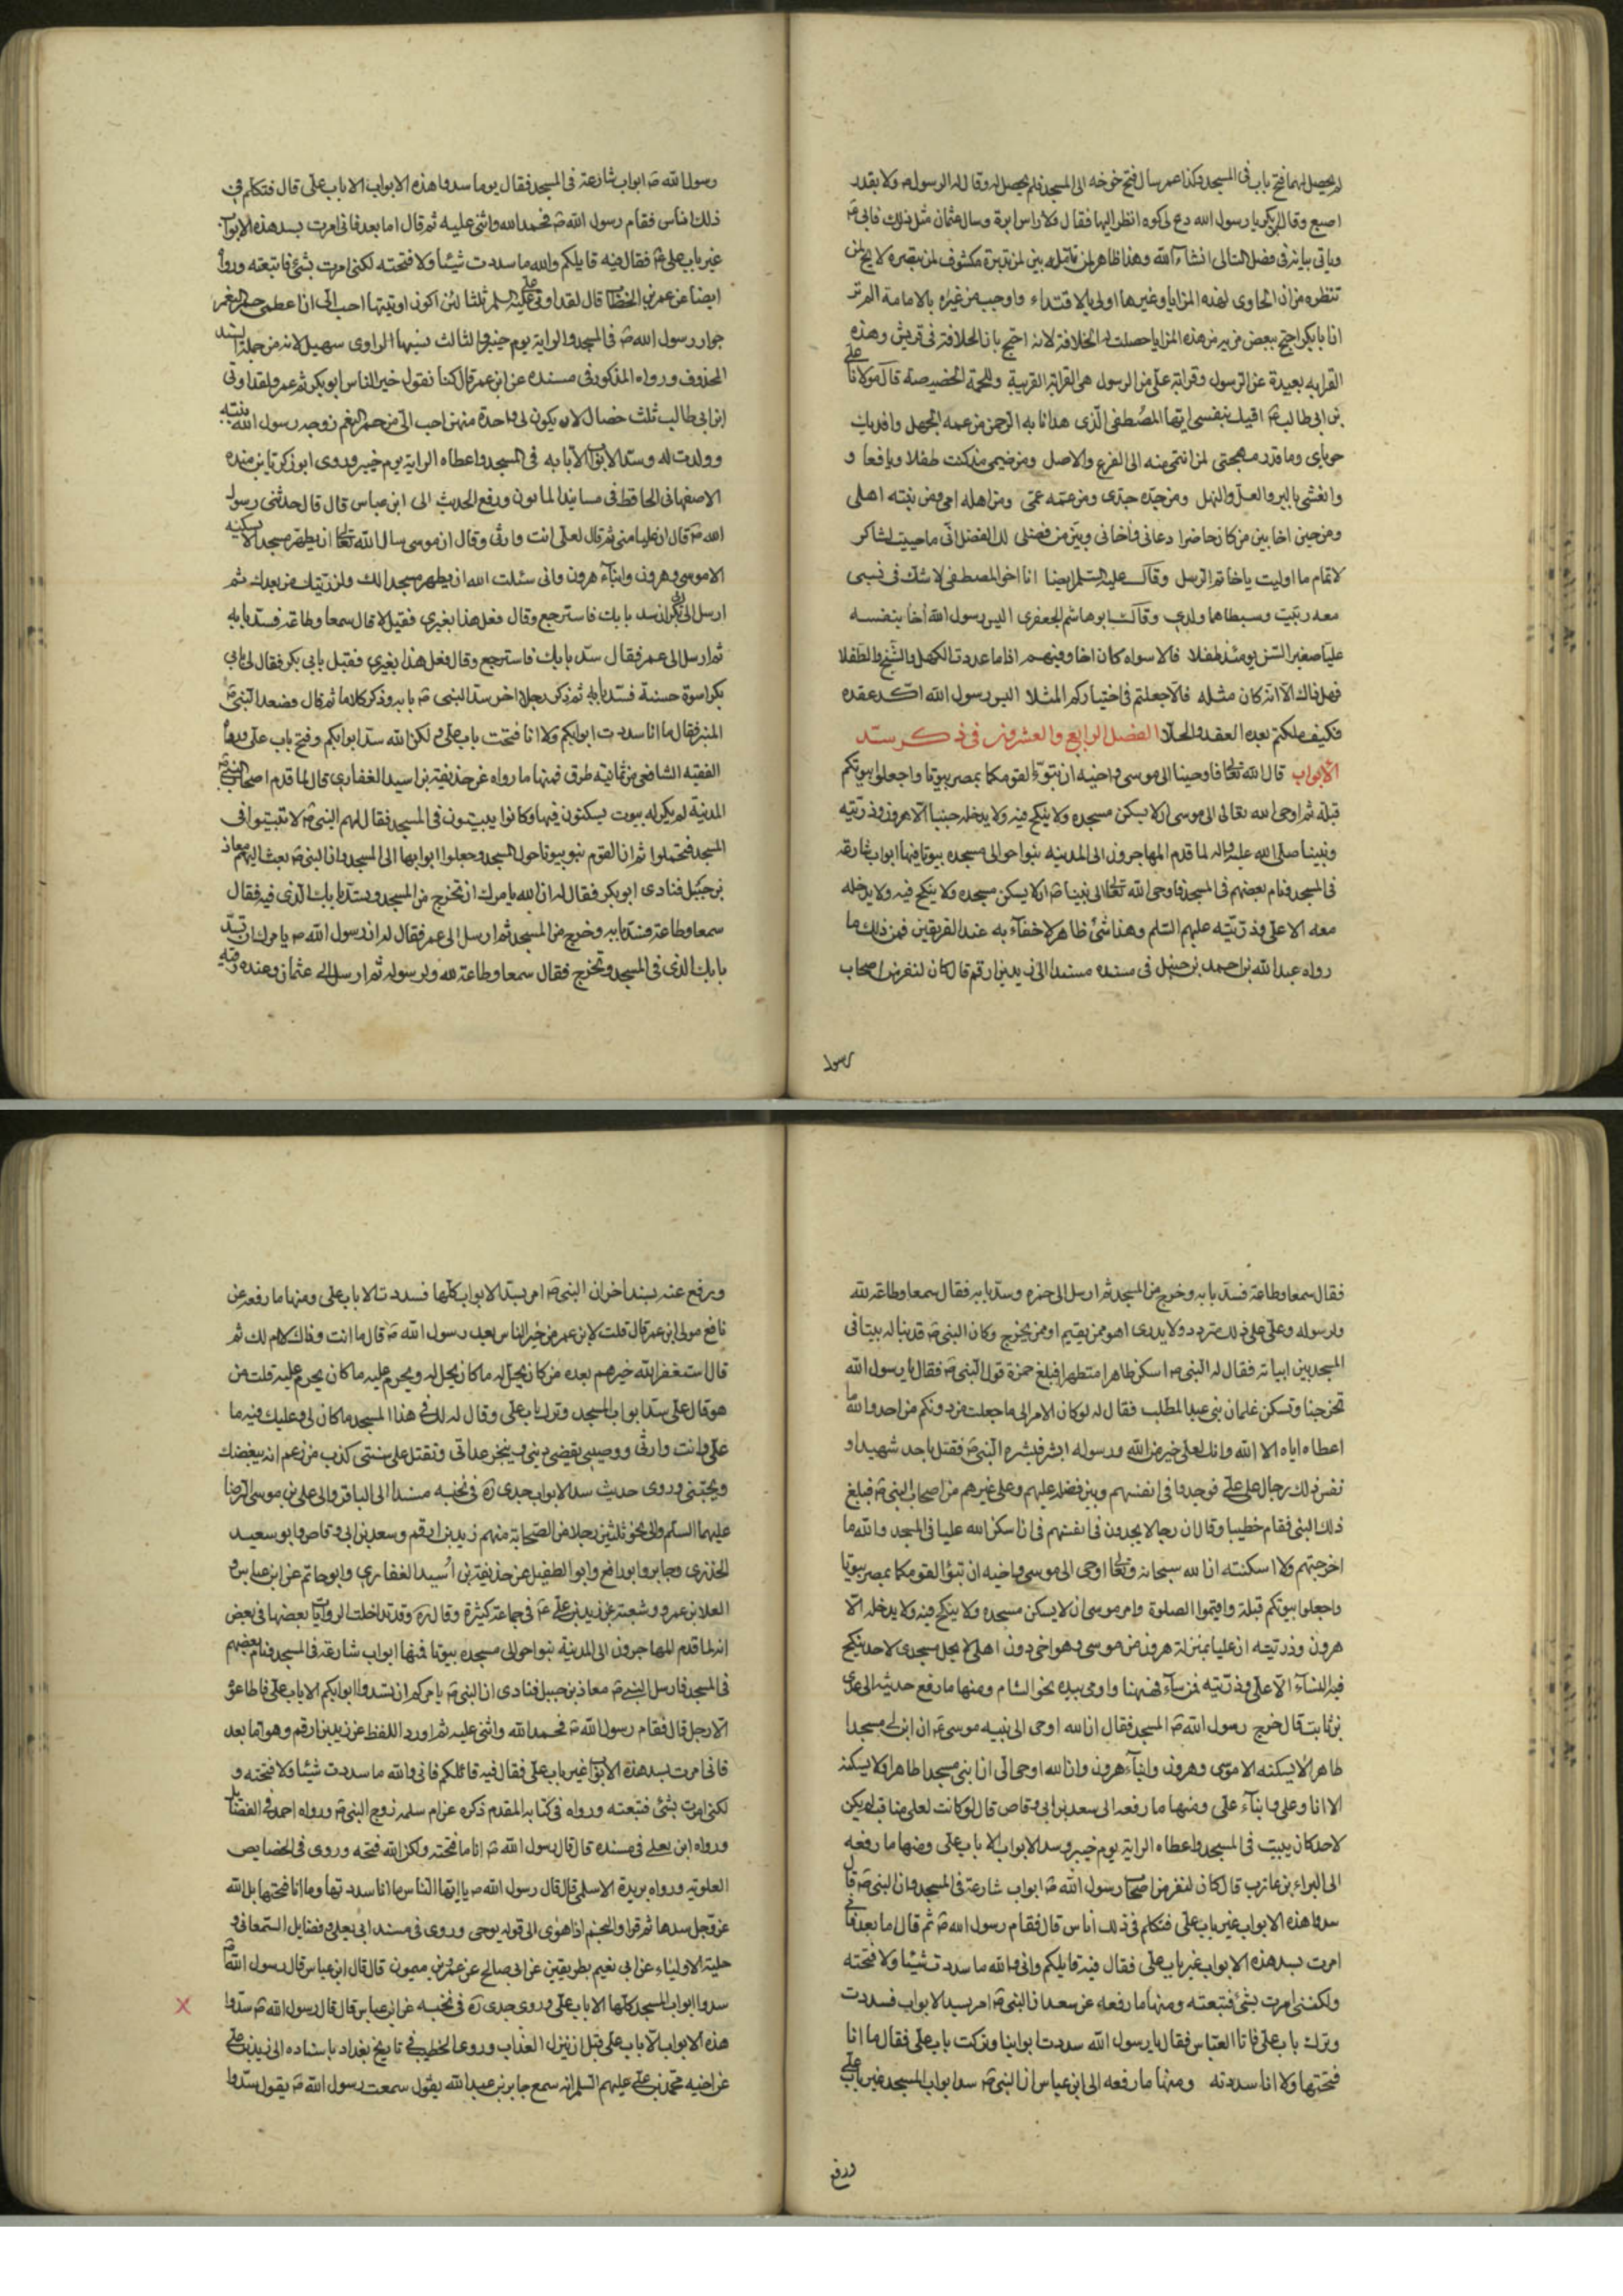 لم يحصل لهما فتح باب في المسجد وكذا عمر سال فتح خوخه الى المسجد فلم يحصل له وقال له الرسول ص ولا بقدر
اصبع وقال ابو بكر يا رسول الله دع لي كوه انظر اليها فقال ولا راس ابرة وسال عثمان مثل ذلك فابى ص
وياتى بيانه في فصل التالى انشاء الله وهذا ظاهر لمن تامله بين لمن تدبره مكشوف لمن تبصره لا يح لمن
تنظره من ان الحاوى لهذه المزايا وغيرها اولى بالاقتداء واوجب من غيره بالامامة الم تر
ان ابا بكر احتج ببعض من هذه المزايا حصلت له الخلافة لانه احتج بان الخلافة في قريش وهذه
القرابه بعيدة عن الرسول وقرابة على من الرسول هى القرابة القريبة واللحمة الخصيصة قال مولانا على
بن ابى طالب ع اقيك بنفسى ايها المصطفى الذى هدانا به الرحمن من عمه الجهل وافديك
حوباى وما قدر مهجتى لمن انتمى منه الى الفرع والاصل ومن ضمنى مذ كنت طفلا ويافعا و
وانعشنى بالبر والعل والنهل ومن جده جدى ومن عمه عمى ومن اهله امى ومن بنته اهلى
ومن حين اخا بين من كان حاضرا دعانى فاخانى وبين من فضلى لك الفضل انى ما حييت لشاكر
لاتمام ما اوليت يا خاتم الرسل وقال عليه السلم ايضا انا اخو المصطفى لا شك في نسبى
معه ربيت وسبطاه هما ولدي وقال ابو هاشم الجعفرى اليس رسول الله اخا بنفسه
عليا صغير السن يومئذ طفلا فالا سواه كان اخا وفيهم اذا ما عددت الكهل والشيخ والطفلا
فهل ذاك الا انه كان مثله فالا جعلتم في اختياركم المثلا اليس رسول الله اكد عقده
فكيف ملكتم بعده العقد والحلا الفصل الرابع والعشرون في ذكر سد
الابواب قال الله تعالى فاوحينا الى موسى واخيه ان تبوء لقومكما بمصر بيوتا واجعلوا بيوتكم
قبلة ثم اوحى الله تعالى الى موسى ان لا يسكن مسجده ولا ينكح فيه ولا يدخله جنبا الا هرون وذريته
ونبينا صلى الله عليه واله لما قدم المهاجرون الى المدينه بنوا حوالى مسجده بيوتا فيها ابواب شارعة
في المسجد فنام بعضهم في المسجد فاوحى الله تعالى الى نبينا ص ان لا يسكن مسجده ولا ينكح فيه ولا يدخله
معه الا على وذريته عليهم السلم وهذا شئ ظاهر لا خفاء به عند الفريقين فمن ذلك ما
رواه عبد الله بن احمد بن حنبل في مسنده مسندا الى زيد بن ارقم قال كان لنفر من اصحاب
رسول
رسول الله ص ابواب شارعة في المسجد فقال يوما سدوا هذه الابواب الا باب على قال فتكلم في
ذلك اناس فقام رسول الله ص فحمد الله واثنى عليه ثم قال اما بعد فانى امرت بسد هذه الابواب
غير باب على ع فقال فيه قايلكم والله ما سددت شيئا ولا فتحته لكنى امرت بشئ فاتبعته وروا
ايضا عن عمر بن الخطاب قال لقد اوتى على عليه السلم ثلثا لئن اكون اوتيتها احب الى ان اعطى حمر النعم
جوار رسول الله ص في المسجد والراية يوم خيبر والثالث نسيها الراوى سهيل لانه من جملة السد
المحذوف ورواه المذكور في مسنده عن ابن عمر قال كنا نقول خير الناس ابو بكر ثم عمر ولقد اوتى
ابن ابى طالب ثلث خصال لان يكون لى واحدة منهن احب الى من حمر النعم زوجه رسول الله بنته
وولدت له وسد الابواب الا بابه في المسجد واعطاه الراية يوم خيبر وروى ابو زكريا بن منده
الاصفهانى الحافظ في مسانيد المامون ورفع الحديث الى ابن عباس قال قال حدثنى رسول
الله ص قال ان عليا منى ثم قال لعلى انت وارثى وقال ان موسى سال الله تعالى ان يطهر مسجدا لا يسكنه
الا موسى وهرون وابناء هرون وانى سئلت الله ان يطهر مسجدا لك ولذريتك من بعدك ثم
ارسل الى ابى بكر ان سد بابك فاسترجع وقال فعل هذا بغيرى فقيل لا قال سمعا وطاعة فسد بابه
ثم ارسل الى عمر فقال سد بابك فاسترجع وقال فعل هذا بغيرى فقيل بابى بكر فقال لى بابى
بكر اسوة حسنة فسد بابه ثم ذكر رجلا اخر سد النبى ص بابه وذكر كلاما ثم قال فصعد النبى ص
المنبر فقال ما انا سددت ابوابكم ولا انا فتحت باب على ولكن الله سد ابوابكم وفتح باب على ورواه
الفقيه الشافعى من ثمانية طرق فمنها ما رواه عن حذيفة بن اسيد الغفارى قال لما قدم اصحاب النبى ص
المدينة لم يكن له بيوت يسكنون فيها وكانوا يبيتون في المسجد فقال لهم النبى ص لا تبيتوا في
المسجد فتحتملوا ثم ان القوم بنو بيوتا حول المسجد وجعلوا ابوابها الى المسجد وان النبى ص بعث اليهم معاذ
بن جبل فنادى ابو بكر فقال له ان الله يامرك ان تخرج من المسجد وتسد بابك الذى فيه فقال
سمعا وطاعة فسد بابه وخرج من المسجد ثم ارسل الى عمر فقال له ان رسول الله ص يامرك ان تسد
بابك الذى في المسجد وتخرج فقال سمعا وطاعة لله ولرسوله ثم ارسل الى عثمان وعنده رقيه
فقال سمعا وطاعة فسد بابه وخرج من المسجد ثم ارسل الى حمزه وسد بابه فقال سمعا وطاعة لله
ولرسوله وعلى على ذلك متردد ولا يدرى اهو ممن يقيم او ممن يخرج وكان النبى ص قد بنا له بيتا في
المسجد بين ابياته فقال له النبى ص اسكن طاهرا متطهرا فبلغ حمزة قول النبى ص فقال يا رسول الله
تخرجنا وتسكن غلمان بنى عبد المطلب فقال له لو كان الامر الى ما جعلت من دونكم من احد والله ما
اعطاه اياه الا الله وانك لعلى خير من الله ورسوله ابشر فبشره النبى ص فقتل باحد شهيدا و
نفس ذلك رجال على على فوجدوا في انفسهم وبين فضله عليهم وعلى غيرهم من اصحاب النبى ص فبلغ
ذلك النبى فقام خطيبا وقال ان رجالا يجدون في انفسهم في ان اسكن الله عليا في المسجد والله ما
اخرجتهم ولا اسكنته ان الله سبحانه وتعالى اوحى الى موسى واخيه ان تبوؤا لقومكما بمصر بيوتا
واجعلوا بيوتكم قبلة واقيموا الصلوة وامر موسى ان لا يسكن مسجده ولا ينكح فيه ولا يدخله الا
هرون وذريته ان عليا بمنزلة هرون من موسى وهو اخى دون اهلى لا يحل مسجدى لاحد ينكح
فيه النساء الا على وذريته فمن ساءه فههنا واومى بيده نحو الشام ومنها ما رفع حديثه الى عدى
بن ثابت قال خرج رسول الله ص المسجد فقال ان الله اوحى الى نبيه موسى ع ان ابن لى مسجدا
طاهرا لا يسكنه الا موسى وهرون وابناء هرون وان الله اوحى الى ان ابنى مسجدا طاهرا لا يسكنه
الا انا وعلى وابناء على ومنها ما رفعه الى سعد بن ابى وقاص قال لو كانت لعلى مناقب لم يكن
لاحد كان يبيت في المسجد واعطاه الراية يوم خيبر وسد الابواب الا باب على ومنها ما رفعه
الى البراء بن عازب قال كان لنفر من اصحاب رسول الله ص ابواب شارعة في المسجد وان النبى ص قال
سدوا هذه الابواب غير باب على فتكلم في ذلك اناس قال فقام رسول الله ص ثم قال اما بعد فانى
امرت بسد هذه الابواب غير باب على فقال فيه قايلكم وانى والله ما سددت شيئا ولا فتحته
ولكننى امرت بشئ فتبعته ومنها ما رفعه عن سعد ان النبى ص امر بسد الابواب فسددت
وترك باب على فاتا العباس فقال يا رسول الله سددت ابوابنا وتركت باب على فقال ما انا
فتحتها ولا انا سددته ومنها ما رفعه الى ابن عباس ان النبى ص سد ابواب المسجد غير باب على
ورفع
ورفع عنه بسند اخر ان النبى ص امر بسد الابواب كلها فسددت الا باب على ومنها ما رفعه عن
نافع مولى ابن عمر قال قلت لابن عمر من خير الناس بعد رسول الله ص قال ما انت وذاك لا ام لك ثم
قال استغفر الله خيرهم بعده من كان يحل له ما كان يحل له ويحرم عليه ما كان يحرم عليه قلت من
هو قال على سد ابواب المسجد وترك باب على وقال له لك في هذا المسجد ما كان لى وعليك فيه ما
على وانت وارثى ووصيى يقضى دينى وينجز عداتى وتقتل على سنتى كذب من زعم انه يبغضك
ويحبنى وروى حديث سد الابواب جدى ره في نخبه مسندا الى الباقر والى على بن موسى الرضا
عليهما السلم والى نحو ثلثين رجلا من الصحابة منهم زيد بن ارقم وسعد بن ابى وقاص وابو سعيد
الخدرى وجابر وابو رافع وابو الطفيل عن حذيفة بن اسيد الغفاري وابو حاتم عن ابن عباس و
العلا بن عمر وشعبة عن زيد بن على ع في جماعة كثيرة وقال ره وقد تداخلت الروايات بعضها في بعض
انه لما قدم المهاجرون الى المدينة بنوا حوالى مسجده بيوتا فيها ابواب شارعة في المسجد فنام بعضهم
في المسجد فارسل النبى ص معاذ بن جبل فنادى ان النبى ص يامركم ان تسدوا ابوابكم الا باب على فاطاعوه
الا رجل قال فقام رسول الله ص فحمد الله واثنى عليه ثم اورد اللفظ عن زيد بن ارقم وهو اما بعد
فانى امرت بسد هذه الابواب غير باب على فقال فيه قائلكم فانى والله ما سددت شيئا ولا فتحته و
لكنى امرت بشئ فتبعته ورواه في كتابه المقدم ذكره عن ام سلمه زوج النبى ص ورواه احمد في الفضايل
ورواه ابن يعلى في مسنده قال قال رسول الله ص انا ما فتحته ولكن الله فتحه وروى في الخصايص
العلويه ورواه بريدة الاسلمى قال قال رسول الله ص يا ايها الناس ما انا سددتها وما انا فتحتها بل الله
عز وجل سدها ثم قرا والنجم اذا هوى الى قوله يوحى وروى في مسند ابى يعلى وفضايل السمعانى و
حلية الاولياء عن ابى نعيم بطريقين عن ابى صالح عن عمرو بن ميمون قال قال ابن عباس قال رسول الله ص
سدوا ابواب المسجد كلها الا باب على وروى جدى ره في نخبه عن ابن عباس قال قال رسول الله ص سدوا
هذه الابواب الا باب على قبل ان ينزل العذاب وروى الخطيب في تاريخ بغداد باسناده الى زيد بن على
عن اخيه محمد بن على عليهم السلم انه سمع جابر بن عبد الله يقول سمعت رسول الله ص يقول سدوا